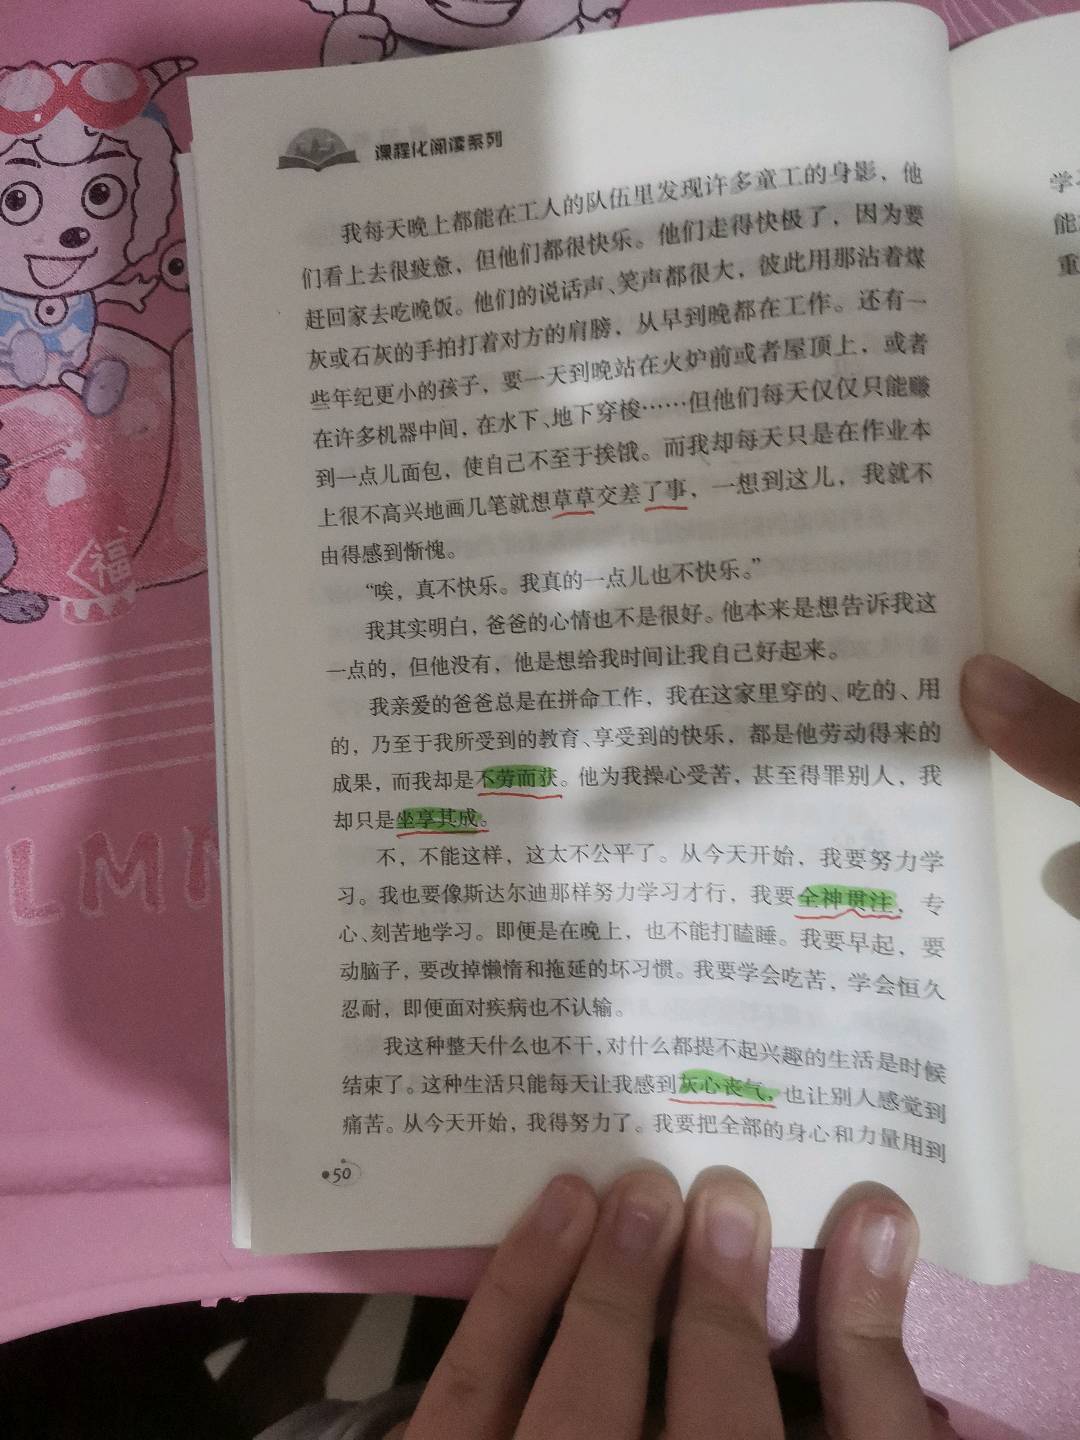 课程化阅读系列
我每天晚上都能在工人的队伍里发现许多童工的身影，他
们看上去很疲惫，但他们都很快乐。他们走得快极了，因为要
赶回家去吃晚饭。他们的说话声、笑声都很大，彼此用那沾着煤
灰或石灰的手拍打着对方的肩膀，从早到晚都在工作。还有一
些年纪更小的孩子，要一天到晚站在火炉前或者屋顶上，或者
在许多机器中间，在水下、地下穿梭……但他们每天仅仅只能赚
到一点儿面包，使自己不至于挨饿。而我却每天只是在作业本
上很不高兴地画几笔就想草草交差了事，一想到这儿，我就不
由得感到惭愧。
“唉，真不快乐。我真的一点儿也不快乐。”
我其实明白，爸爸的心情也不是很好。他本来是想告诉我这
一点的，但他没有，他是想给我时间让我自己好起来。
我亲爱的爸爸总是在拼命工作，我在这家里穿的、吃的、用
的，乃至于我所受到的教育、享受到的快乐，都是他劳动得来的
成果，而我却是不劳而获。他为我操心受苦，甚至得罪别人，我
却只是坐享其成。
不，不能这样，这太不公平了。从今天开始，我要努力学
习。我也要像斯达尔迪那样努力学习才行，我要全神贯注，专
心、刻苦地学习。即便是在晚上，也不能打瞌睡。我要早起，要
动脑子，要改掉懒惰和拖延的坏习惯。我要学会吃苦，学会恒久
忍耐，即便面对疾病也不认输。
我这种整天什么也不干，对什么都提不起兴趣的生活是时候
结束了。这种生活只能每天让我感到灰心丧气，也让别人感觉到
痛苦。从今天开始，我得努力了。我要把全部的身心和力量用到
50
学
能
重
福
LMM